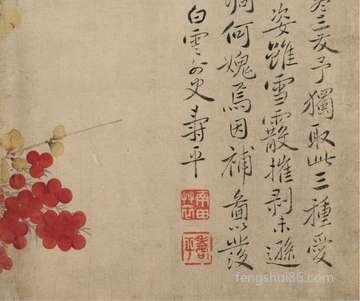 三友予獨取此三種愛
姿雖雪霰摧剥未遜
何愧焉因補圖以發
白雲外史壽平
壽平
fengshui86.com